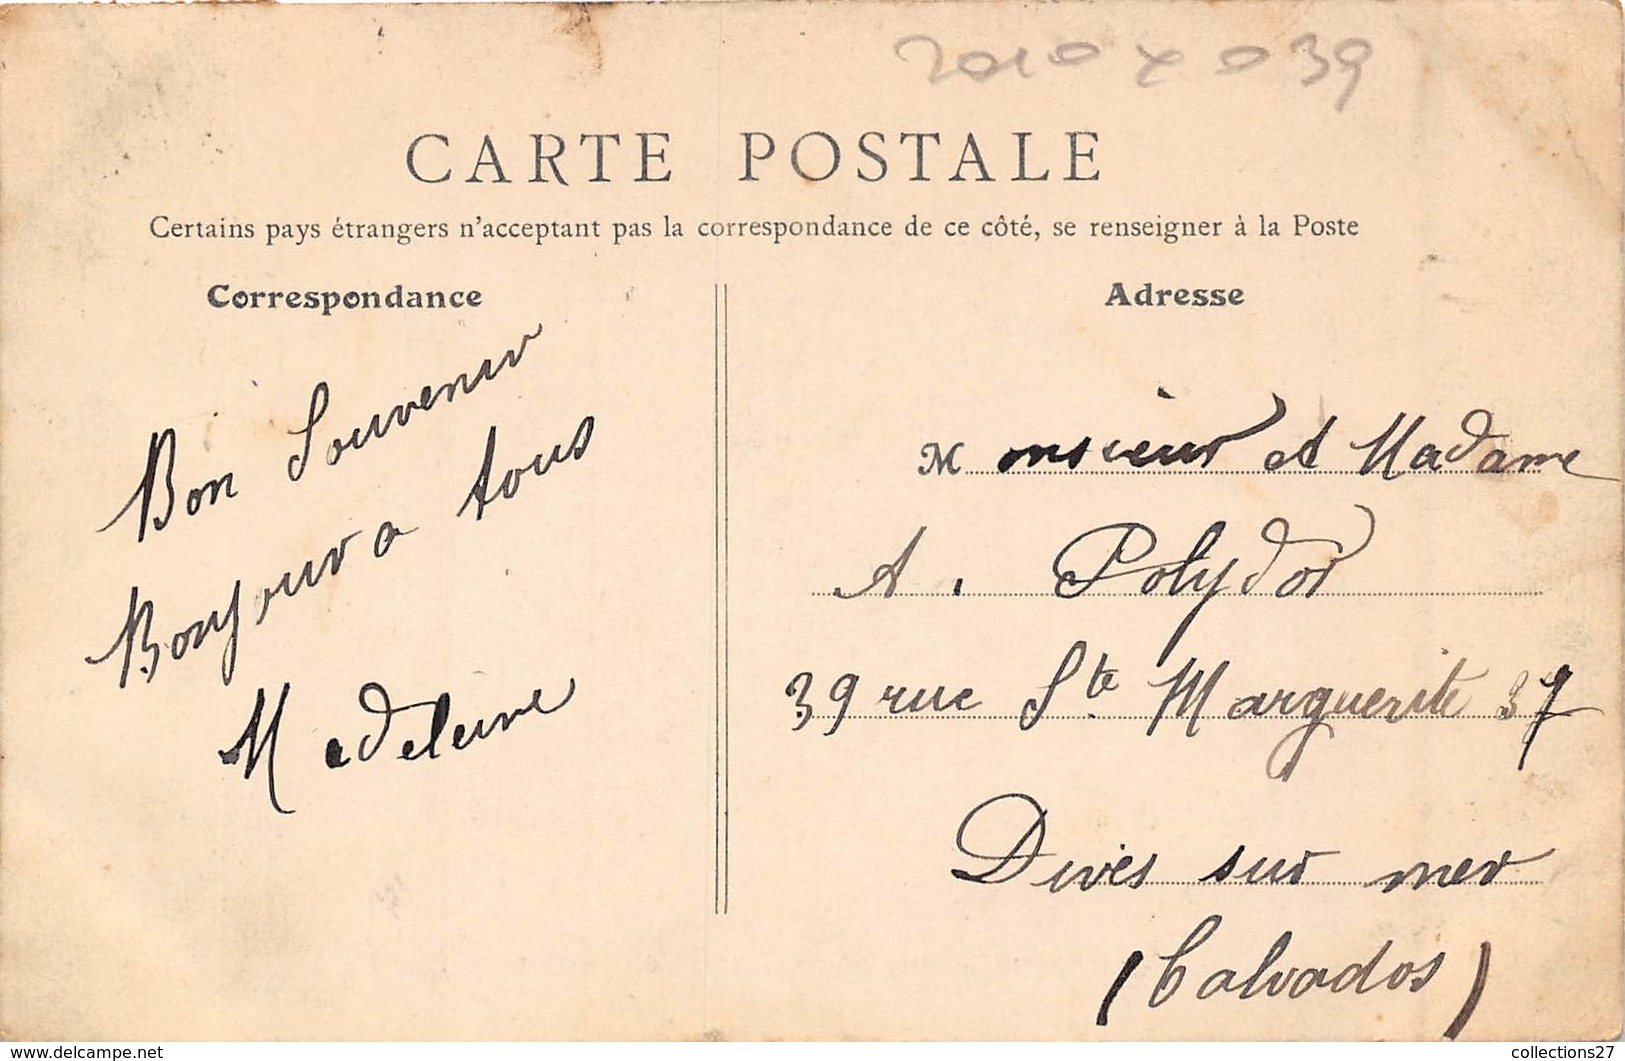 2010 x 039
CARTE POSTALE
Certains pays étrangers n'acceptant pas la correspondance de ce côté, se renseigner à la Poste
Correspondance
Bon Souvenir
Bonjour a tous
Madeleine
Adresse
Monsieur et Madame
A. Polydor
39 rue Ste Marguerite 37
Dives sur mer
(Calvados)
www.delcampe.net
collections27